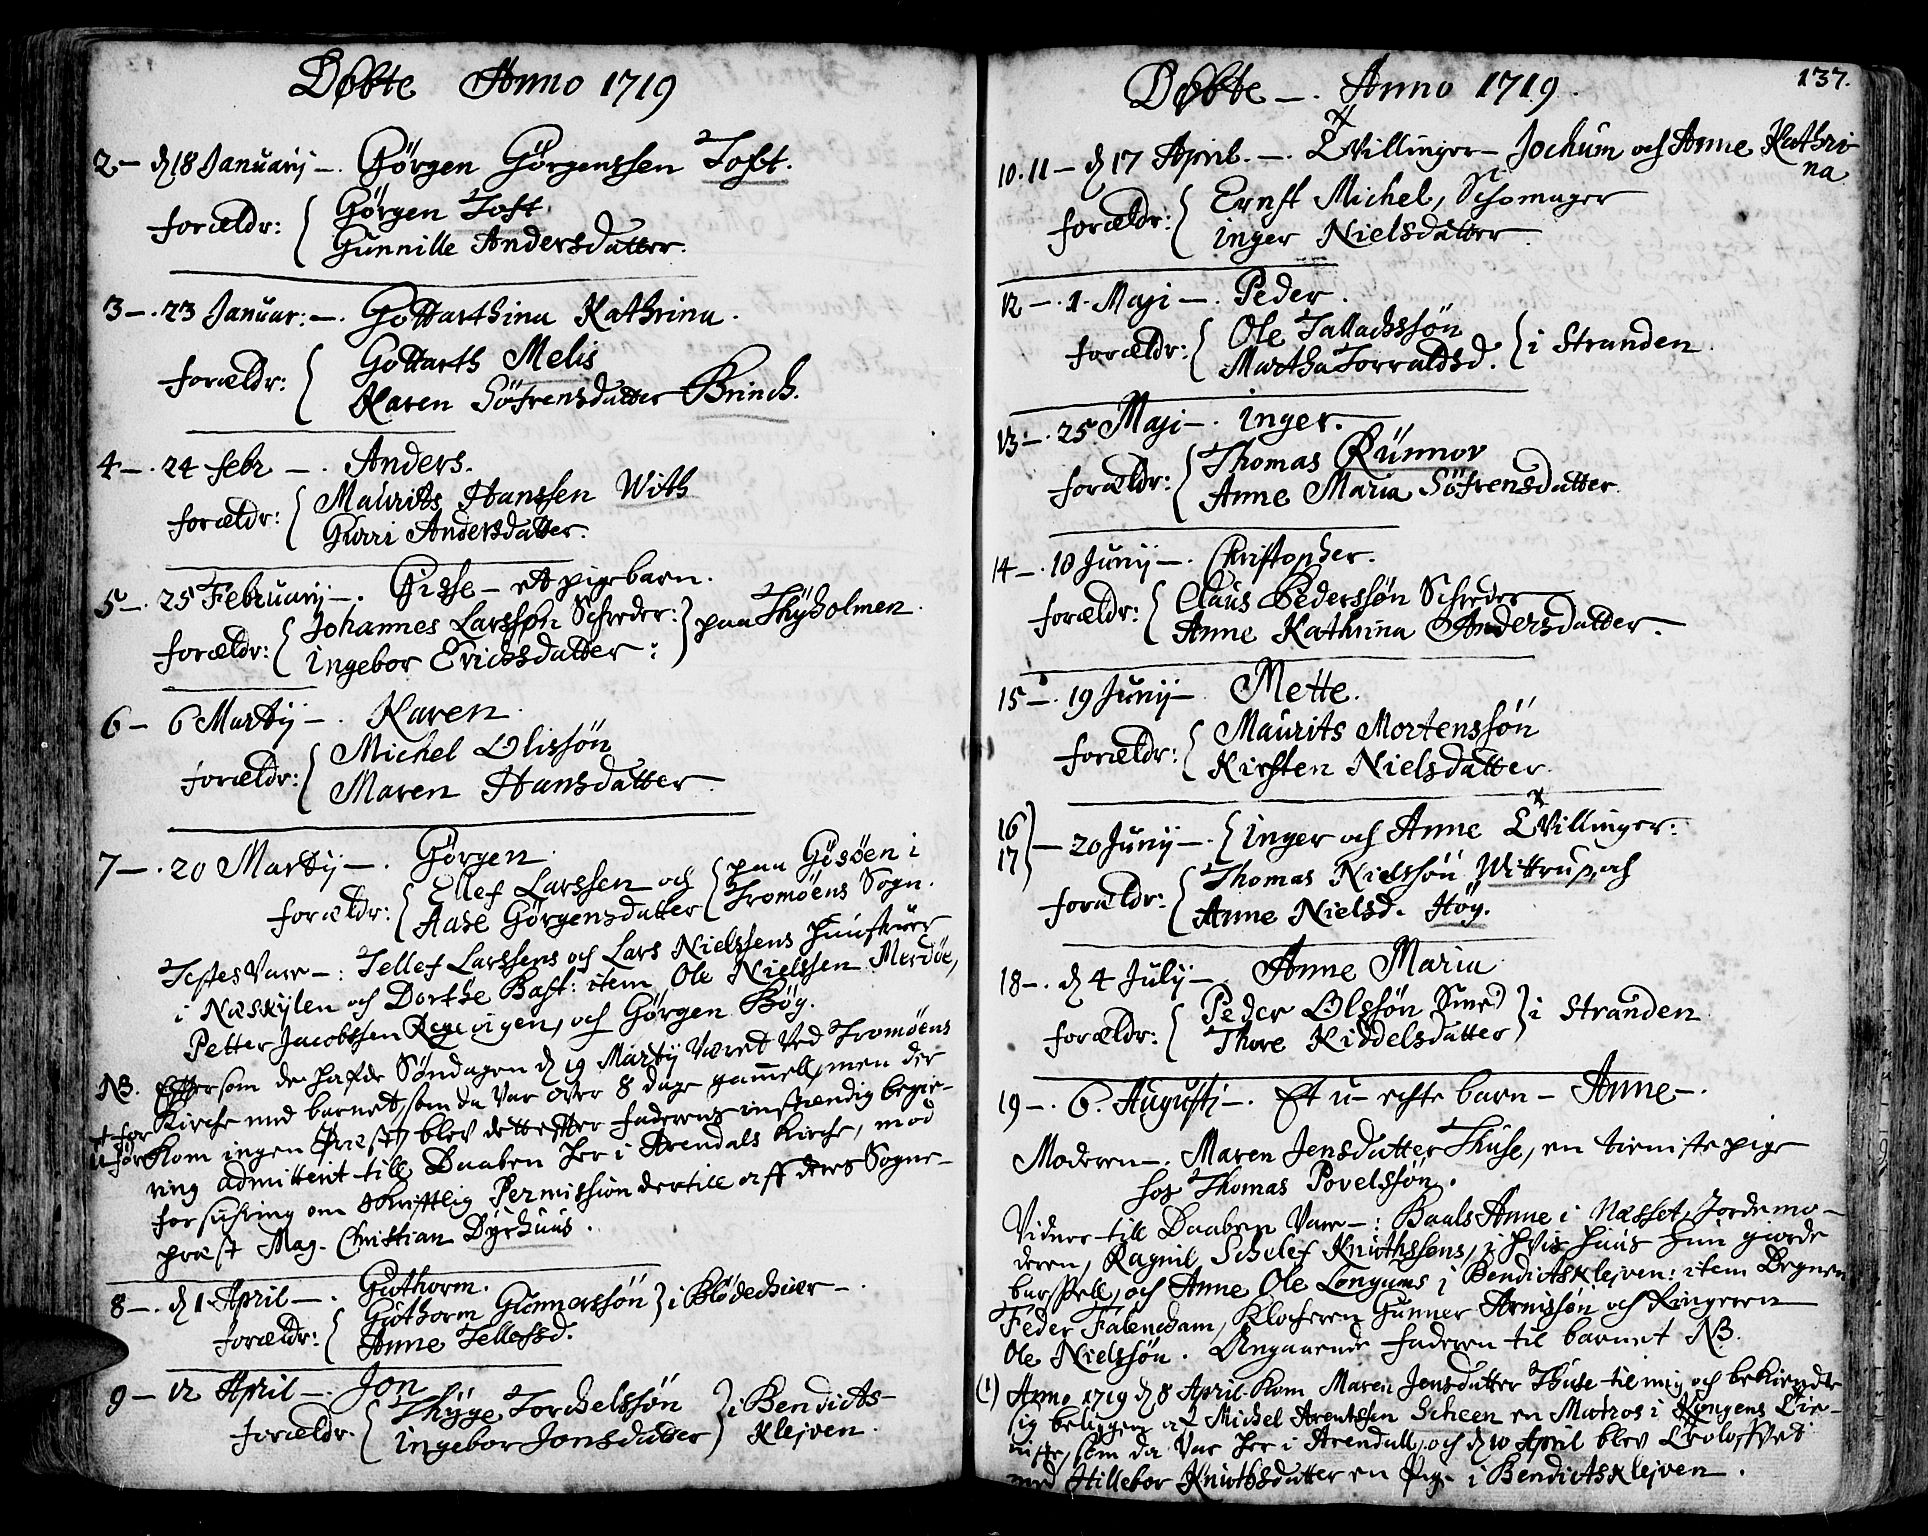 Døbte Anno 1719
2 – d 18 Januarij –. Gørgen Gørgenssen Toft.
forældr: Gørgen Toft
Gunnille Andersdatter.
3 –. 23 Januar: –. Gottarthina Kathrina.
forældr: Gottarth Melis
Karen Söfrensdatter Brinch.
4 –. 24 febr –. Anders.
forældr: Maurits Hanssen With
Gurri Andersdatter.
5 –. 25 Februarij –. Gisse – et pigebarn.
forældr: Johannes Larssøn Schreder:
Ingebor Erichsdatter: paa Thyholmen.
6 – 6 Martij –. Karen.
forældr: Michel Olissøn
Maren Hansdatter.
7 –. 20 Martij –. Gørgen
forældr: Ellef Larssen och paa Gösöen i
Aase Görgensdatter Tromöens Sogn.
Testes Vare –: Tellef Larssens och Lars Nielssens hustruer
i Næskylen och Dorthe Bast: item Ole Nielssen Merdöe,
Petter Jacobssen Regevigen, och Görgen Bög.
NB. Eftersom de hafde Søndagen d 19 Martij Været Ved Tromöens
Kirche med barnet, som da Var over 8 dage gammell, men der
kom ingen Præst, blev dette efter faderens instændig begie-
ring admitterit till Daaben her i Arendals Kirche, mod
forsickring om skriftlig Permission dertill aff deres Sogne-
præst Mag. Christian Dyrhuus.
8 –. d 1 April –. Guthorm.
forældr: Guthorm Gunnerssön i Blödechiær –.
Anne Tellefsd.
9 – 12 April –. Jon
forældr. Thyge Torchelssön i Bendicts-
Ingebor Jonsdatter Klejven.
Døbte –. Anno 1719. 137.
10. 11 – d 17 April. –. Tvillinger – Jochum och Anne Kathri-
na
forældr: Ernst Michel, Schomager
Inger Nielsdatter.
12 –. 1. Maji –. Peder.
forældr: Ole Tallachssøn
Martha Torvaldsd. i Stranden.
13 –. 25 Maji –. Inger.
forældr: Thomas Runnov
Anne Maria Söfrensdatter.
14 –. 18 Junij –. Christopher.
forældr: Claus Pederssøn Schreder
Anne Kathrina Andersdatter.
15 –. 19 Junij –. Mette.
forældr: Maurits Mortenssøn
Kirsten Nielsdatter.
16
17 – 20 Junij –. Inger och Anne Tvillinger:
forældr: Thomas Nielssön Wittrup, och
Anne Nielsd. Höy.
18 –. d 4 Julij – Anne Maria
forældr: Peder Olssøn Smed i Stranden
Thore Kiddelsdatter
19 –. 6. Augusti –. Et u-echte barn – Anne –.
Moderen –. Maren Jensdatter Thuse, en tieniste pige
hos Thomas Povelssøn.
Vidner till Daaben Vare –: Baals Anne i Næsset, Jordemo-
deren, Ragnil Schelef Knuthssens, i hvis huus hun giorde
barssell, och Anne Ole Longums i Bendictsklejven: item Degnen
Feder Falencham, Klocheren Gunner Arnissøn och Ringeren
Ole Nielssøn. Angaaende faderen til barnet NB.
(1) Anno 1719 d 8 April kom Maren Jensdatter Thuse til mig och bekiendte
sig beligget af Michel Arentssen Scheen en Matros i Kongens Tie-
niste, som da Var her i Arendall, och d 10 April blev Trolofvet
med Hillebor Knuthsdatter en Pige i Bendictsklejven.